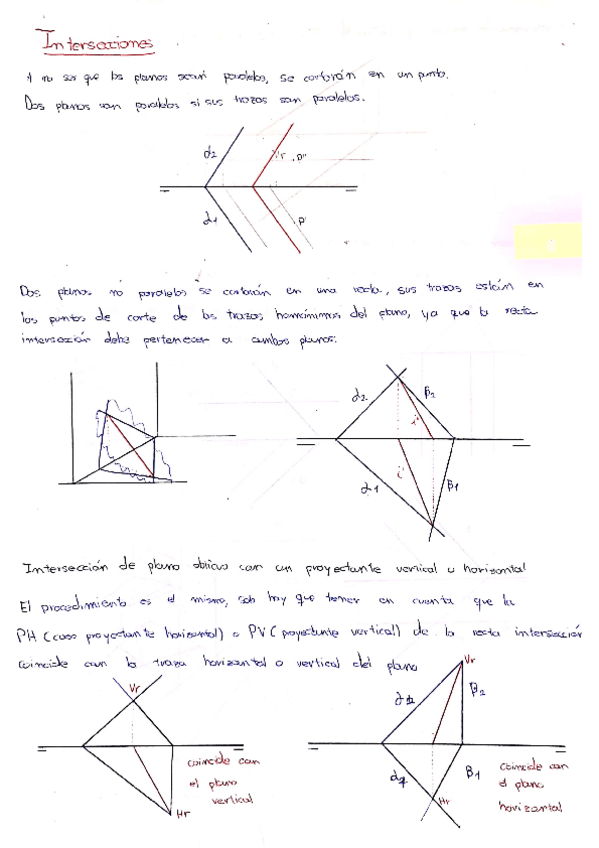 Intersecciones
A no ser que los planos sean paralelos, se cortarán en un punto.
Dos planos son paralelos si sus trazas son paralelos.
α2
Vr
P''
α1
P'
Dos planos no paralelos se cortarán en una recta, sus trazas están en
los puntos de corte de las trazas homónimas del plano, ya que la recta
intersección debe pertenecer a ambos planos:
α2
β2
i''
i'
α1
β1
Intersección de plano oblicuo con un proyectante vertical u horizontal
El procedimiento es el mismo, solo hay que tener en cuenta que la
PH (caso proyectante horizontal) o PV (proyectante vertical) de la recta intersección
coincide con la traza horizontal o vertical del plano
Vr
coincide con
el plano
vertical
Hr
Vr
α2
β2
α1
β1
Hr
coincide con
el plano
horizontal